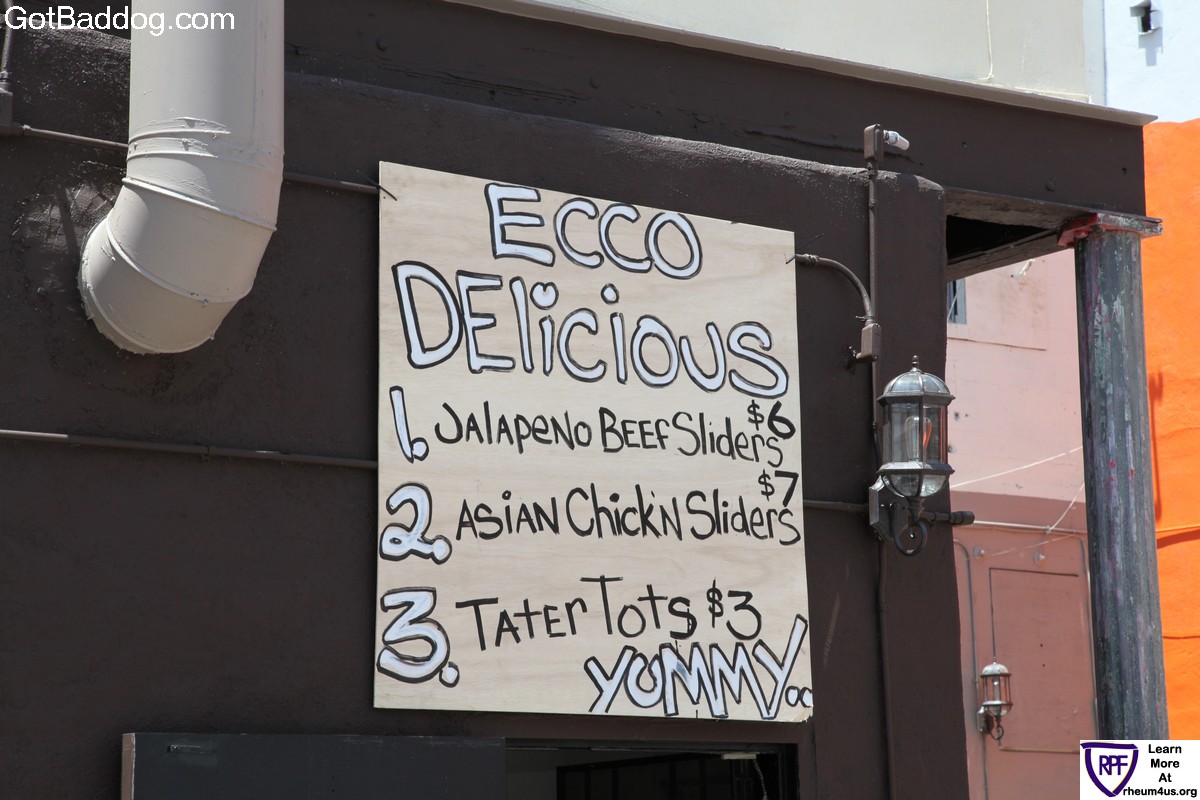 GotBaddog.com
ECCO
DELiCiOUS
1. JALAPENO BEEF Sliders $6
2. ASIAN Chick'N Sliders $7
3. TATEr TOtS $3
YUMMY..
RPF
Learn
More
At
rheum4us.org